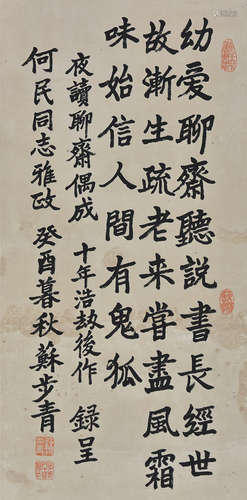 幼爱聊齋聽説書長經世
故漸生疏老来嘗盡風霜
味始信人間有鬼狐
夜讀聊齋偶成 十年浩劫後作 録呈
何民同志雅政 癸酉暮秋 蘇步青